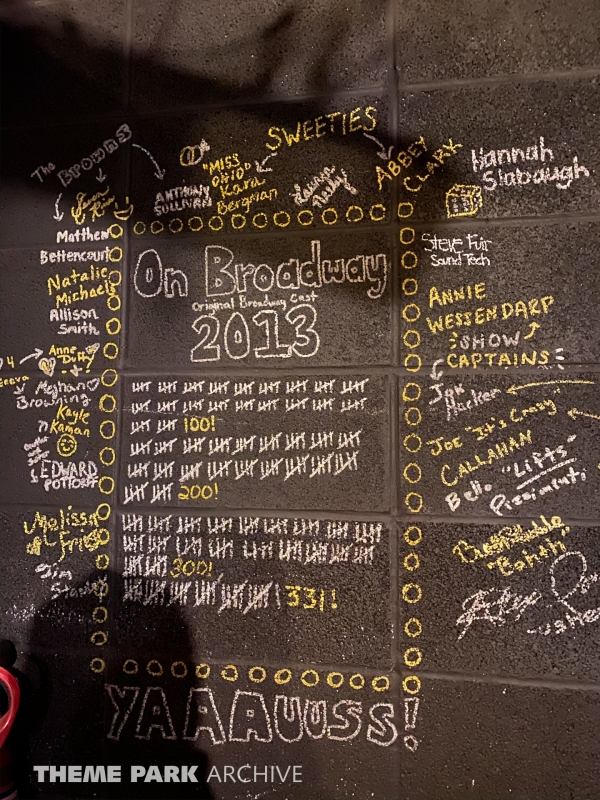 The BROWNS
SWEETIES
ANTHONY
SULLIVAN
"MISS
OHIO"
Kara
Bergman
ABBEY
CLARK
Hannah
Slabaugh
Matthew
Bettencourt
Natalie
Michaels
Allison
Smith
Anne
Duffy
Meghan
Browning
Kayle
Kaman
EDWARD
Melissa
Fries
Jim
On Broadway
Original Broadway Cast
2013
100!
200!
300!
331!
Steve Fuir
Sound Tech
ANNIE
WESSENDARP
SHOW
CAPTAINS
JOE It's Crazy
CALLAHAN
"Lifts"
YAAAUUSS!
THEME PARK ARCHIVE